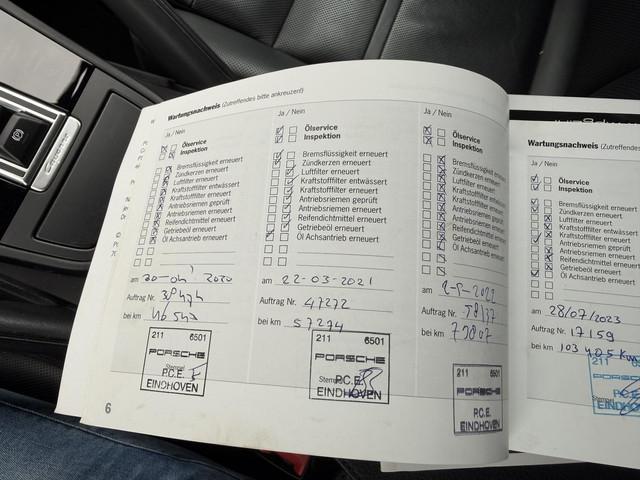 Wartungsnachweis (Zutreffendes bitte ankreuzen!)
Ja / Nein
Ölservice
Inspektion
Bremsflüssigkeit erneuert
Zündkerzen erneuert
Luftfilter erneuert
Kraftstofffilter entwässert
Kraftstofffilter erneuert
Antriebsriemen geprüft
Antriebsriemen erneuert
Reifendichtmittel erneuert
Getriebeöl erneuert
Öl Achsantrieb erneuert
am 20-04 2020
Auftrag Nr.
bei km
211 6501
PORSCHE
P.C.E.
EINDHOVEN
6
Ja / Nein
Ölservice
Inspektion
Bremsflüssigkeit erneuert
Zündkerzen erneuert
Luftfilter erneuert
Kraftstofffilter entwässert
Kraftstofffilter erneuert
Antriebsriemen geprüft
Antriebsriemen erneuert
Reifendichtmittel erneuert
Getriebeöl erneuert
Öl Achsantrieb erneuert
am 22-03-2021
Auftrag Nr. 47272
bei km 57274
211 6501
PORSCHE
P.C.E.
EINDHOVEN
Ja / Nein
Ölservice
Inspektion
Bremsflüssigkeit erneuert
Zündkerzen erneuert
Luftfilter erneuert
Kraftstofffilter
Kraftstofffilter
Antriebsriemen
Antriebsriemen
Reifendichtmittel
Getriebeöl erneuert
Öl Achsantrieb
am
Auftrag Nr.
bei km
211 6501
PORSCHE
P.C.E.
EINDHOVEN
Wartungsnachweis (Zutreffendes
Ja / Nein
Ölservice
Inspektion
Bremsflüssigkeit erneuert
Zündkerzen erneuert
Luftfilter erneuert
Kraftstofffilter
Kraftstofffilter erneuert
Antriebsriemen
Antriebsriemen erneuert
Reifendichtmittel
Getriebeöl erneuert
Öl Achsantrieb erneuert
am 28/07/2023
Auftrag Nr. 17159
bei km 103 405 Km
211